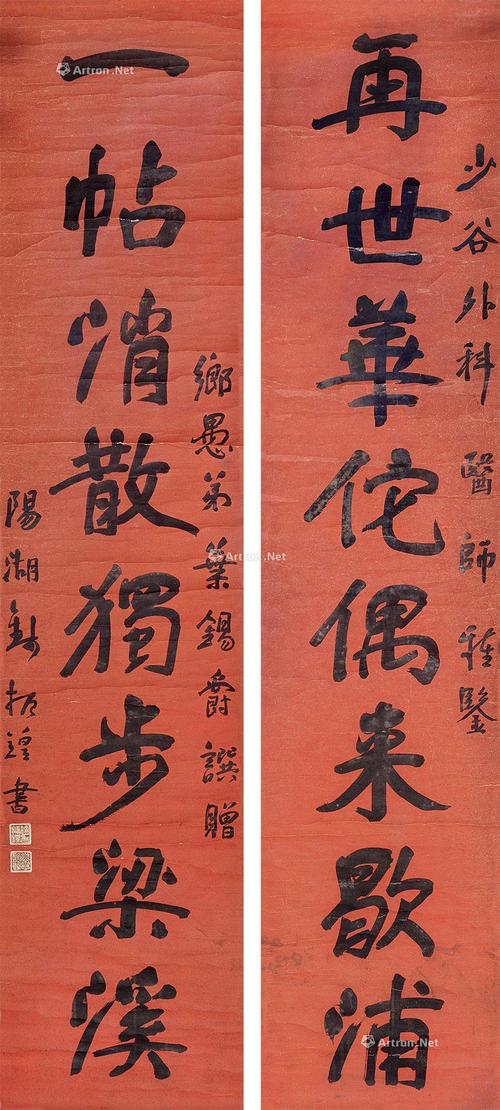 少谷外科醫師雅鑒
再世華佗偶来歇浦
鄉愚弟葉錫爵譔贈
一帖消散獨步梁溪
陽湖錢振鍠書
Artron.Net
Artron.Net
Artron.Net